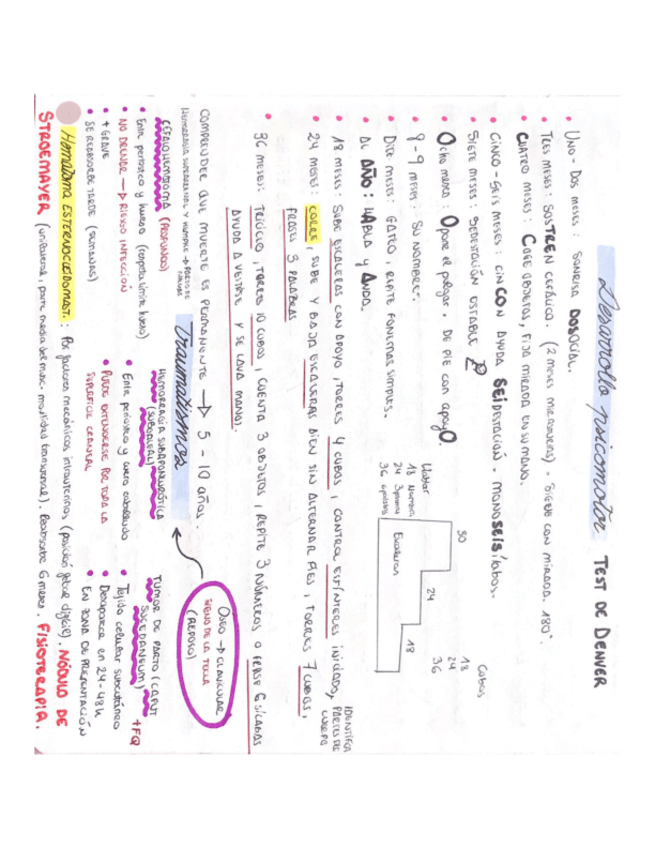 Desarrollo psicomotor TEST DE DENVER
• UNO - DOS MESES: SONRISA DOSOCIAL.
• TRES MESES: SOSTREN CEFÁLICO. (2 meses . SIGEN CON MIRADA. 180°.
• CUATRO MESES: COGE OBJETOS, FIJA MIRADA EN SU MANO.
• CINCO - SEIS MESES: CINCON AYUDA SEIDESTACIÓN. MONOSEIS/LABOS.
• SIETE MESES: SEDESTACIÓN ESTABLE
• OCHO MESES: OPONE EL PULGAR. DE PIE CON APOYO.
• 9 - 9 MESES: SU NOMBRE.
• DIEZ MESES: GATEO, REPITE FONEMAS SIMPLES.
• AL AÑO: HABLA Y ANDA.
Hablar
18 Nombra
24 3 palabras
36 6 palabras
Escaleras
50
24
18
Cubos
18
24
36
• 18 MESES: SUBE ESCALERAS CON APOYO, TORRES 4 CUBOS, CONTROL ESFÍNTERES INICIADO, IDENTIFICA PARTES DEL CUERPO
• 24 MESES: CORRE, SUBE Y BAJA ESCALERAS BIEN SIN ALTERNAR PIES, TORRES 7 CUBOS,
FRASES 3 PALABRAS
• 36 MESES: TRICICLO, TORRES 10 CUBOS, CUENTA 3 OBJETOS, REPITE 3 NÚMEROS O FRASE 6 SÍLABAS
AYUDA A VESTIRSE Y SE LAVA MANOS.
COMPRENDER QUE MUERTE ES PERMANENTE → 5 - 10 AÑOS.
HEMORRAGIA SUPRARRENAL Y HUMERO → PARTO DE NALGAS
Traumatismos
OSEO → CLAVICULAR
SIGNO DE LA TECLA
(REPOSO)
CEFALOHEMATOMA (PROFUNDO)
• Entre periostio y hueso (respeta límite hueso)
• NO DRENAR → RIESGO INFECCIÓN
• + GRAVE
• SE REABSORBE TARDE (SEMANAS)
HEMORRAGIA SUBAPONEURÓTICA
(SUBGALEAL)
• Entre periostio y cuero cabelludo
• PUEDE EXTENDERSE POR TODA LA
SUPERFICIE CRANEAL
TUMOR DE PARTO (CAPUT
SUCEDANEUM) +FQ
• Tejido celular subcutáneo
• Desaparece en 24-48h
• EN ZONA DE PRESENTACIÓN
Hematoma ESTERNOCLEIDOMAST.: Por factores mecánicos intrauterinos (posición fetal difícil). NÓDULO DE
STROEMAYER (unilateral, parte media del musc. movilidad transversal). Reabsorbe 6 meses. FISIOTERAPIA.